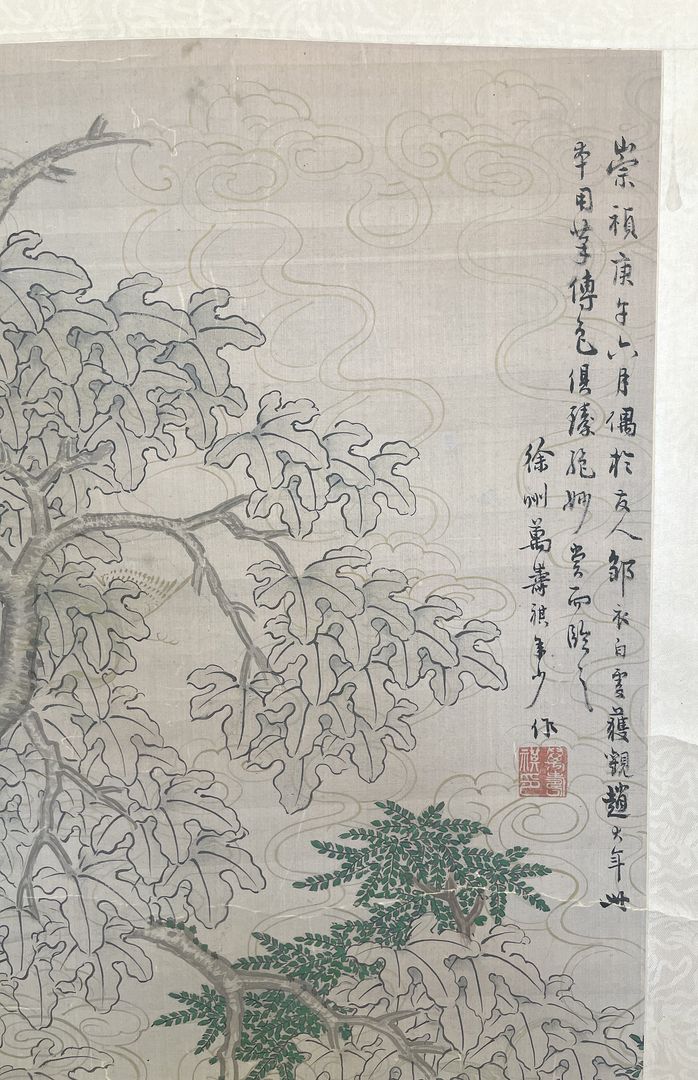 崇禎庚午六月偶於友人鄒衣白處獲觀趙大年此
本用筆傅色俱臻絕妙賞而臨之
徐州萬壽祺年少作
萬壽祺印